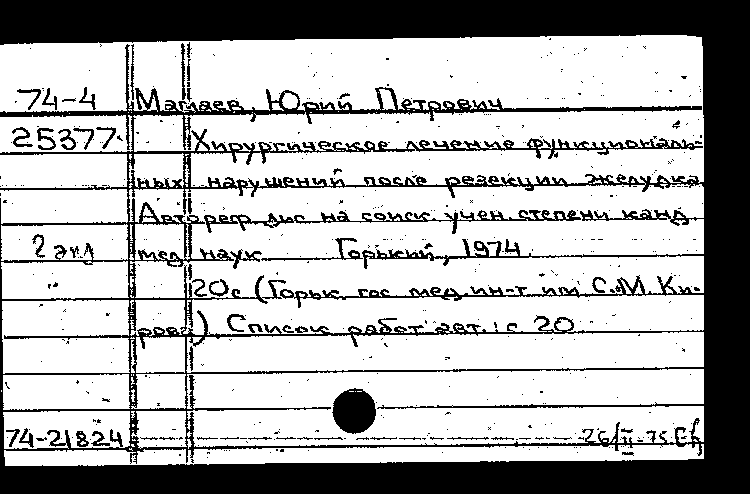 74-4 Мамаев, Юрий Петрович
25377 Хирургическое лечение функциональ-
ных нарушений после резекции желудка
Автореф. дис на соиск. учен. степени канд.
2 экз мед наук Горький, 1974
20с (Горьк. гос мед. ин-т им С.М. Ки-
рова). Список работ авт.: с 20
74-21824 26/II-75